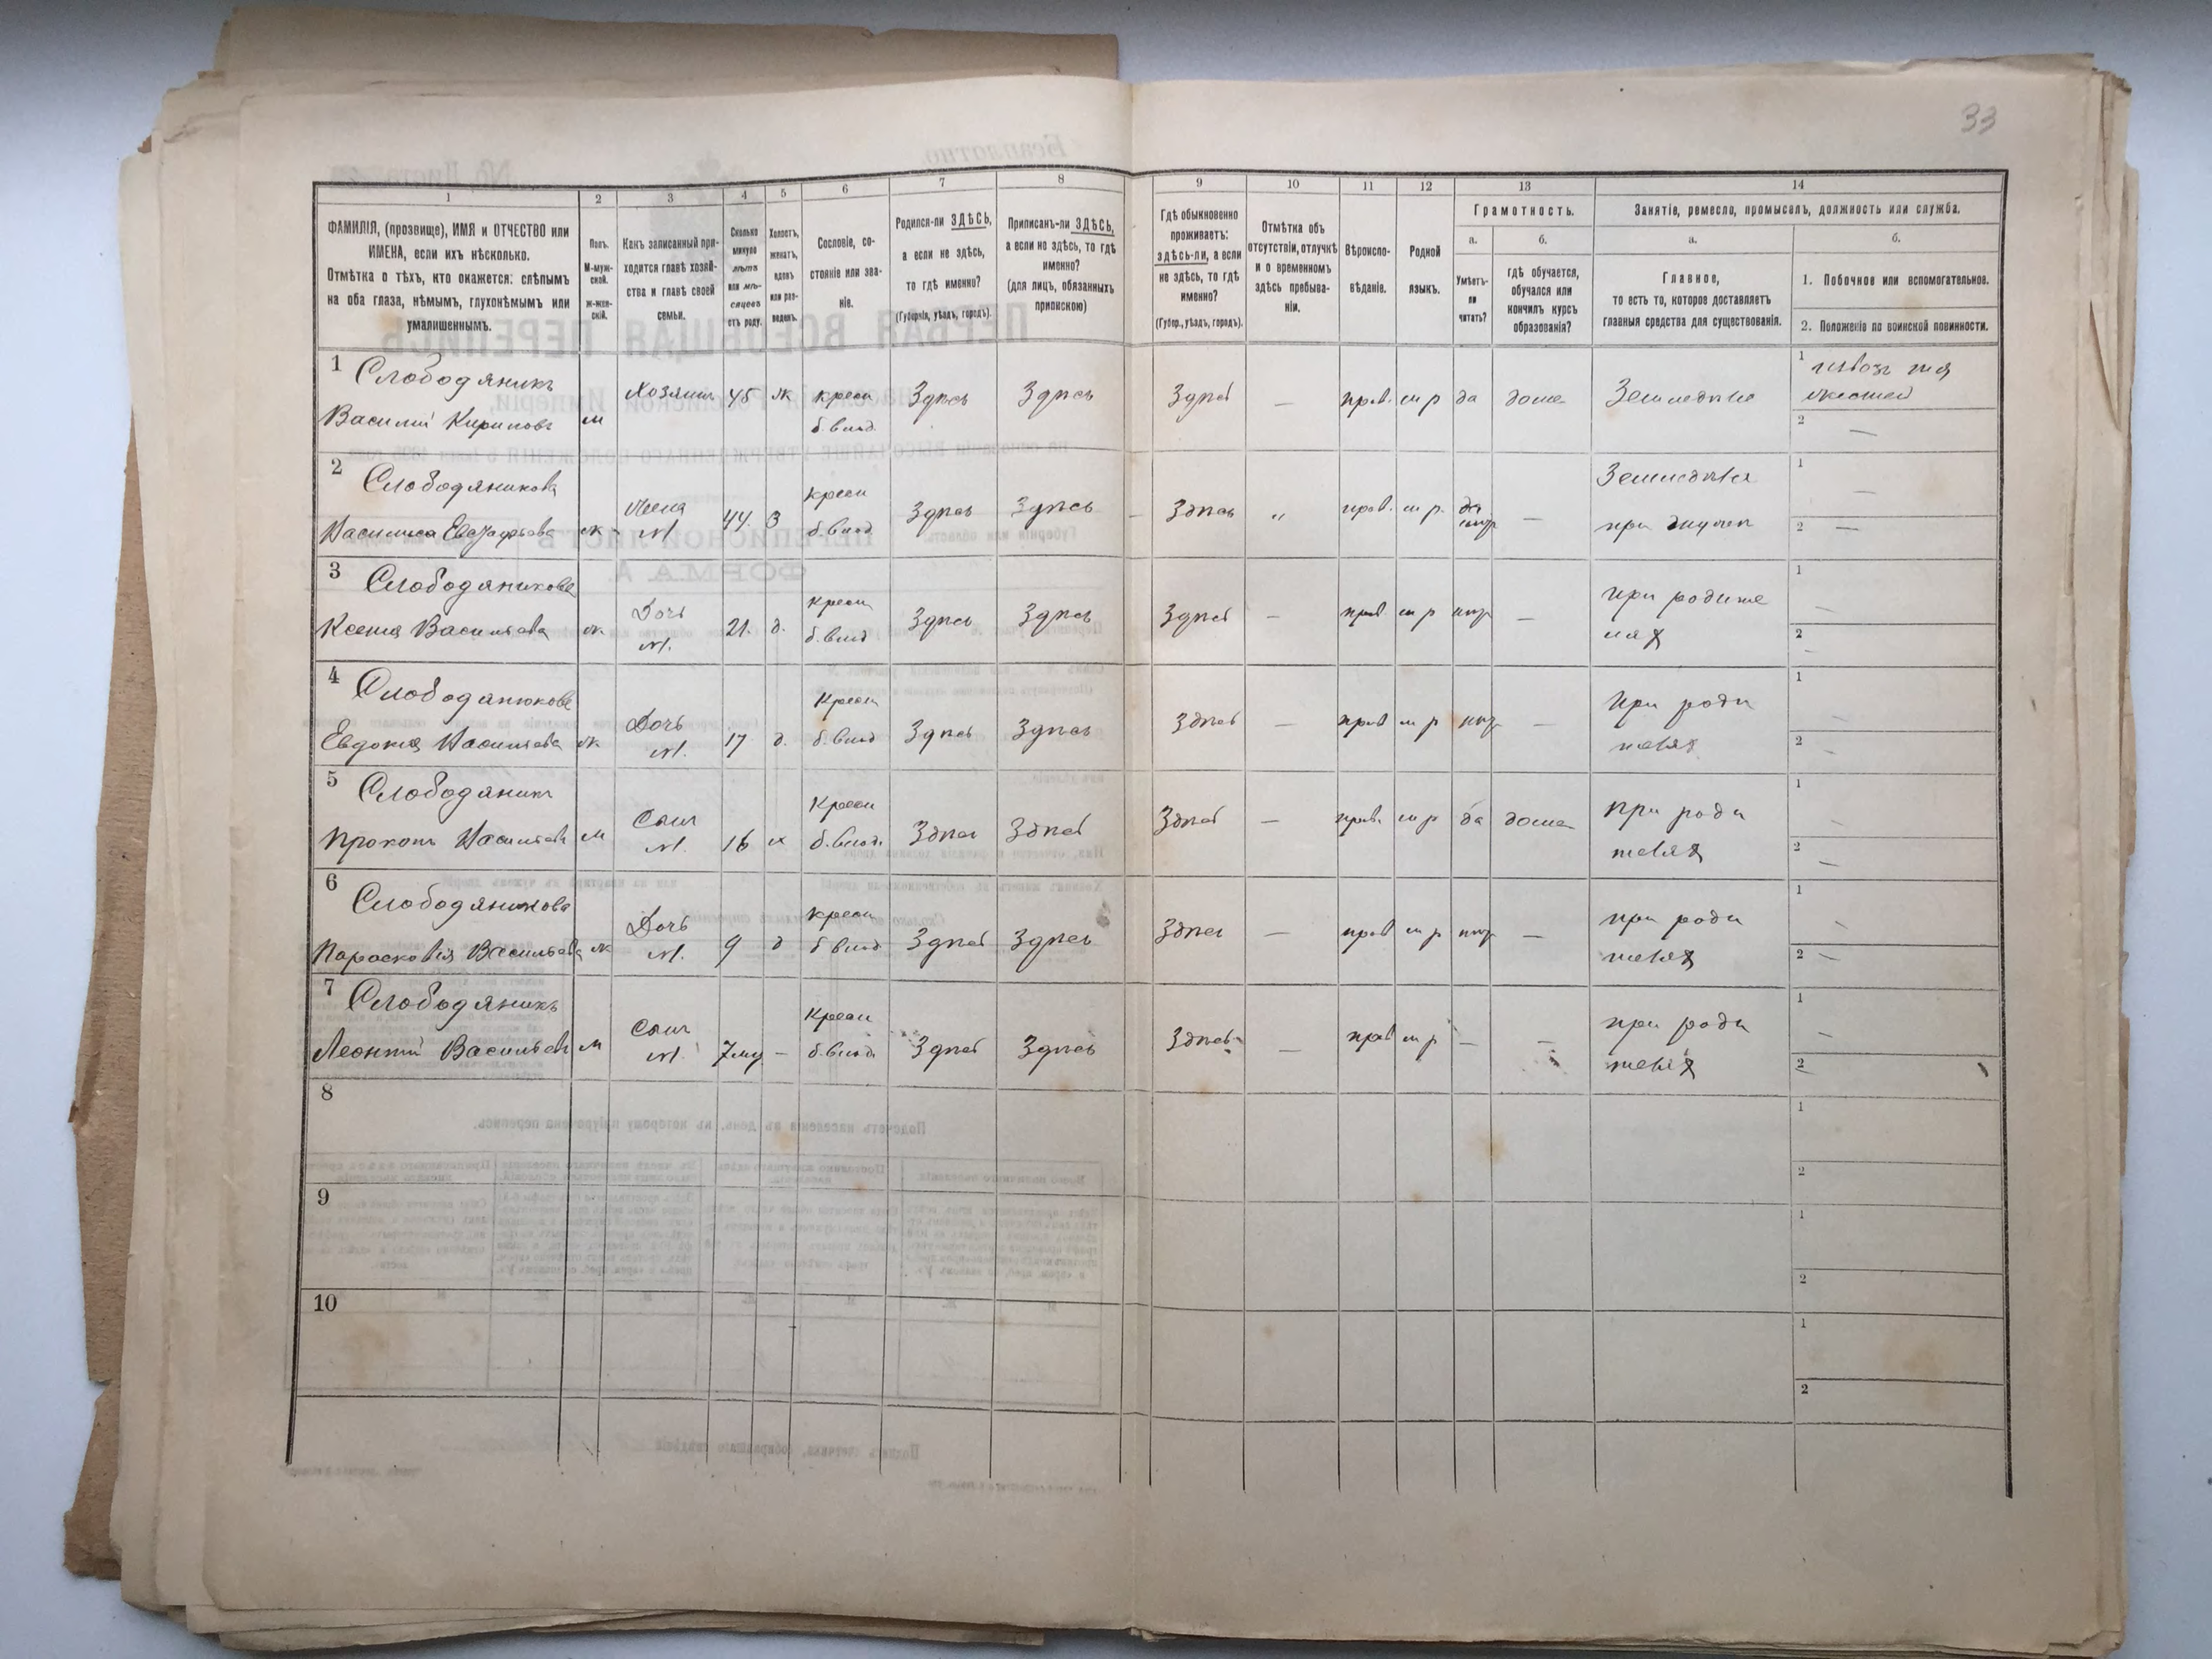 33
1 2 3 4 5 6 7 8 9 10 11 12 13 14
ФАМИЛІЯ, (прозвище), ИМЯ и ОТЧЕСТВО или
ИМЕНА, если ихъ нѣсколько.
Отмѣтка о тѣхъ, кто окажется: слѣпымъ
на оба глаза, нѣмымъ, глухонѣмымъ или
умалишеннымъ.
Полъ.
М-муж-
ской.
ж-жен-
скій.
Какъ записанный при-
ходится главѣ хозяй-
ства и главѣ своей
семьи.
Сколько
минуло
лѣтъ
или мѣ-
сяцевъ
отъ роду.
Холостъ,
женатъ,
вдовъ
или раз-
веденъ.
Сословіе, со-
стояніе или зва-
ніе.
Родился-ли ЗДѢСЬ,
а если не здѣсь,
то гдѣ именно?
(Губернія, уѣздъ, городъ).
Приписанъ-ли ЗДѢСЬ,
а если не здѣсь, то гдѣ
именно?
(для лицъ, обязанныхъ
припискою)
Гдѣ обыкновенно
проживаетъ:
здѣсь-ли, а если
не здѣсь, то гдѣ
именно?
(Губер., уѣздъ, городъ).
Отмѣтка объ
отсутствіи, отлучкѣ
и о временномъ
здѣсь пребыва-
ніи.
Вѣроиспо-
вѣданіе.
Родной
языкъ.
Грамотность.
а.
Умѣетъ-
ли
читать?
б.
гдѣ обучается,
обучался или
кончилъ курсъ
образованія?
Занятіе, ремесло, промыселъ, должность или служба.
а.
Главное,
то есть то, которое доставляетъ
главныя средства для существованія.
б.
1. Побочное или вспомогательное.
2. Положеніе по воинской повинности.
1 Слободяникъ
Василій Кириловъ м Хозяинъ 45 ж крест
б. влад. Здѣсь Здѣсь Здѣсь — прав. м р да дома Земледѣліе 1
2 —
2 Слободяникова
Василиса ж Жена
№1 44. З крест
б. влад Здѣсь Здѣсь Здѣсь „ прав. м р. — Земледѣлія
при 1 —
2 —
3 Слободяникова
Ксенія Васильева ж Дочь
№1. 21. д. крест
б. влад Здѣсь Здѣсь Здѣсь — прав м р нѣт — при родите
лях 1 —
2 -
4 Слободяникова
Евдокія Васильева ж Дочь
№1. 17 д. крест
б. влад Здѣсь Здѣсь Здѣсь — прав м р нѣт — при роди
телях 1 —
2 —
5 Слободяникъ
Прокопъ Васильевъ м Сынъ
№1. 16 х крест
б. влад. Здѣсь Здѣсь Здѣсь — прав. м р да дома при роди
телях 1 —
2 —
6 Слободяникова
Парасковія Васильева ж Дочь
№1. 9 д крест
б влад Здѣсь Здѣсь Здѣсь — прав м р нѣт — при роди
телях 1 —
2 —
7 Слободяникъ
Леонтій Васильевъ м Сынъ
№1. — крест
б. влад. Здѣсь Здѣсь Здѣсь — прав м р — — при роди
телях 1 —
2
8 1
2
9 1
2
10 1
2